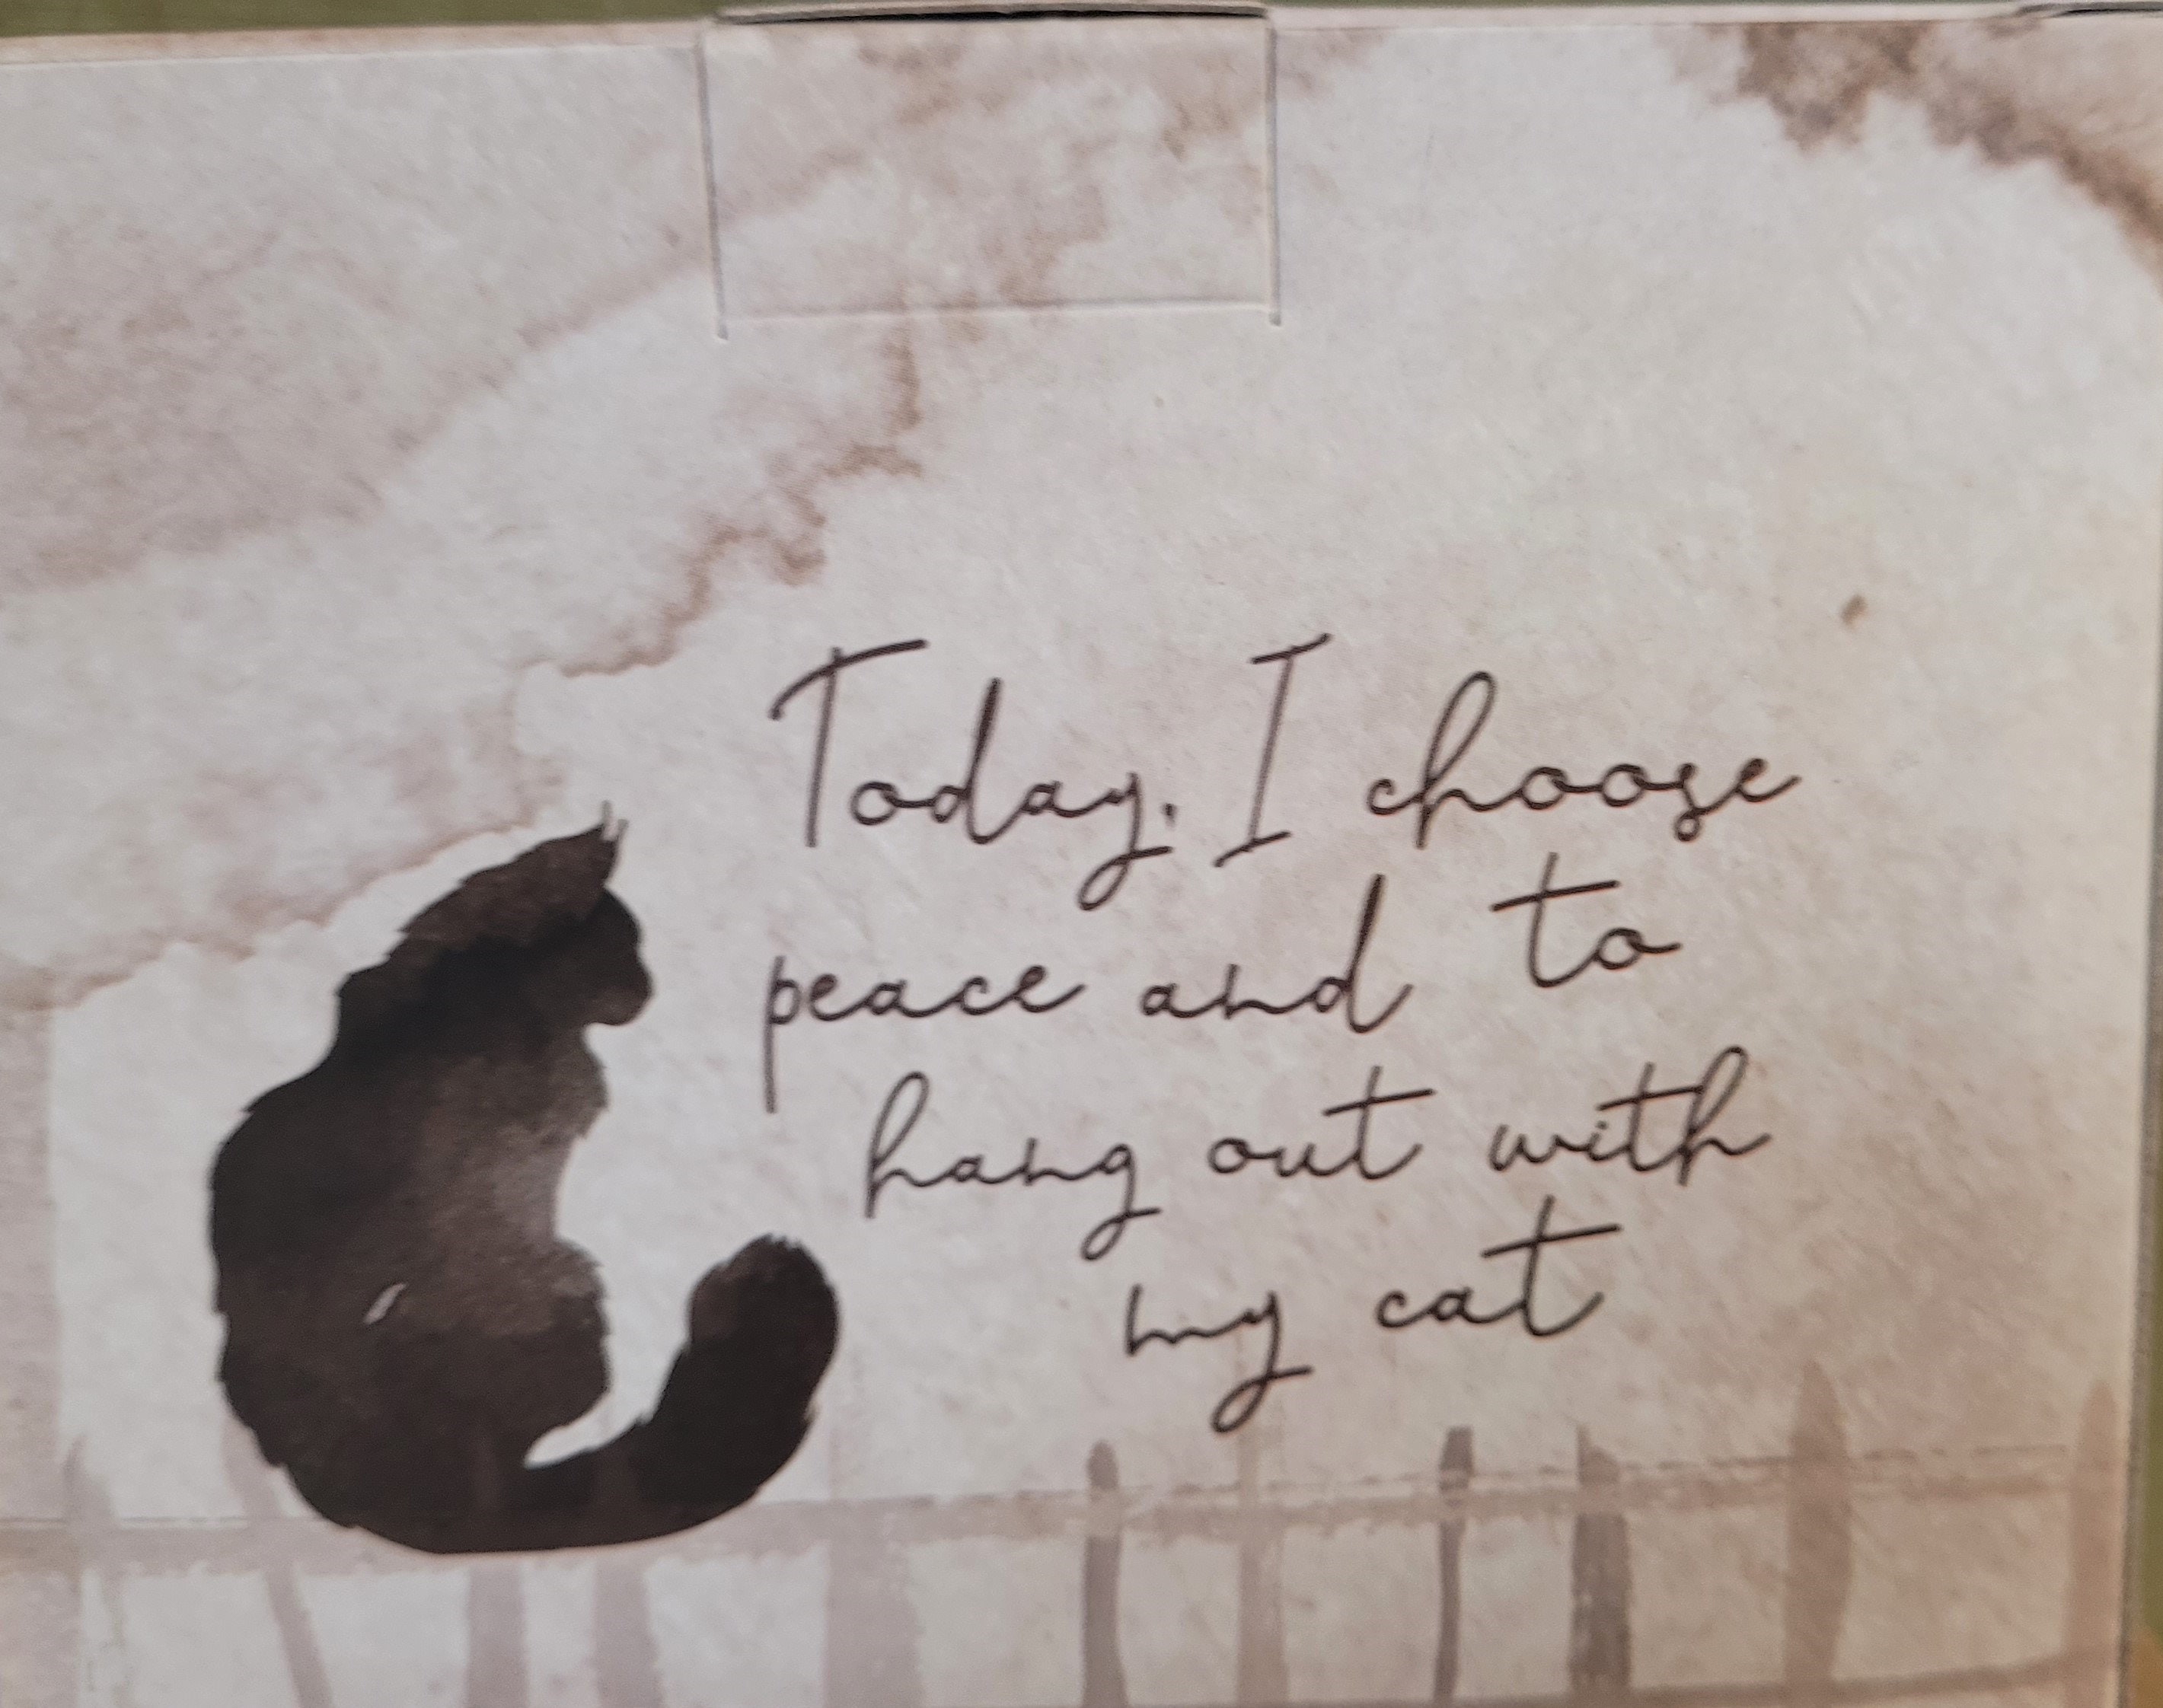 Today, I choose
peace and to
hang out with
my cat